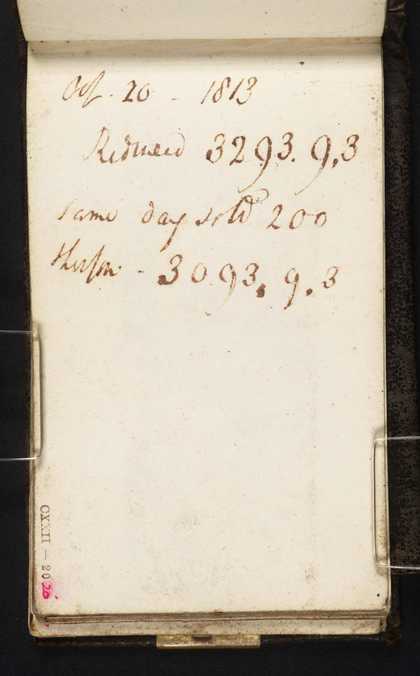 Oct. 20 - 1813
Reduced 3293. 9, 3
Same day sold 200
3093. 9. 3
CXXII — 20